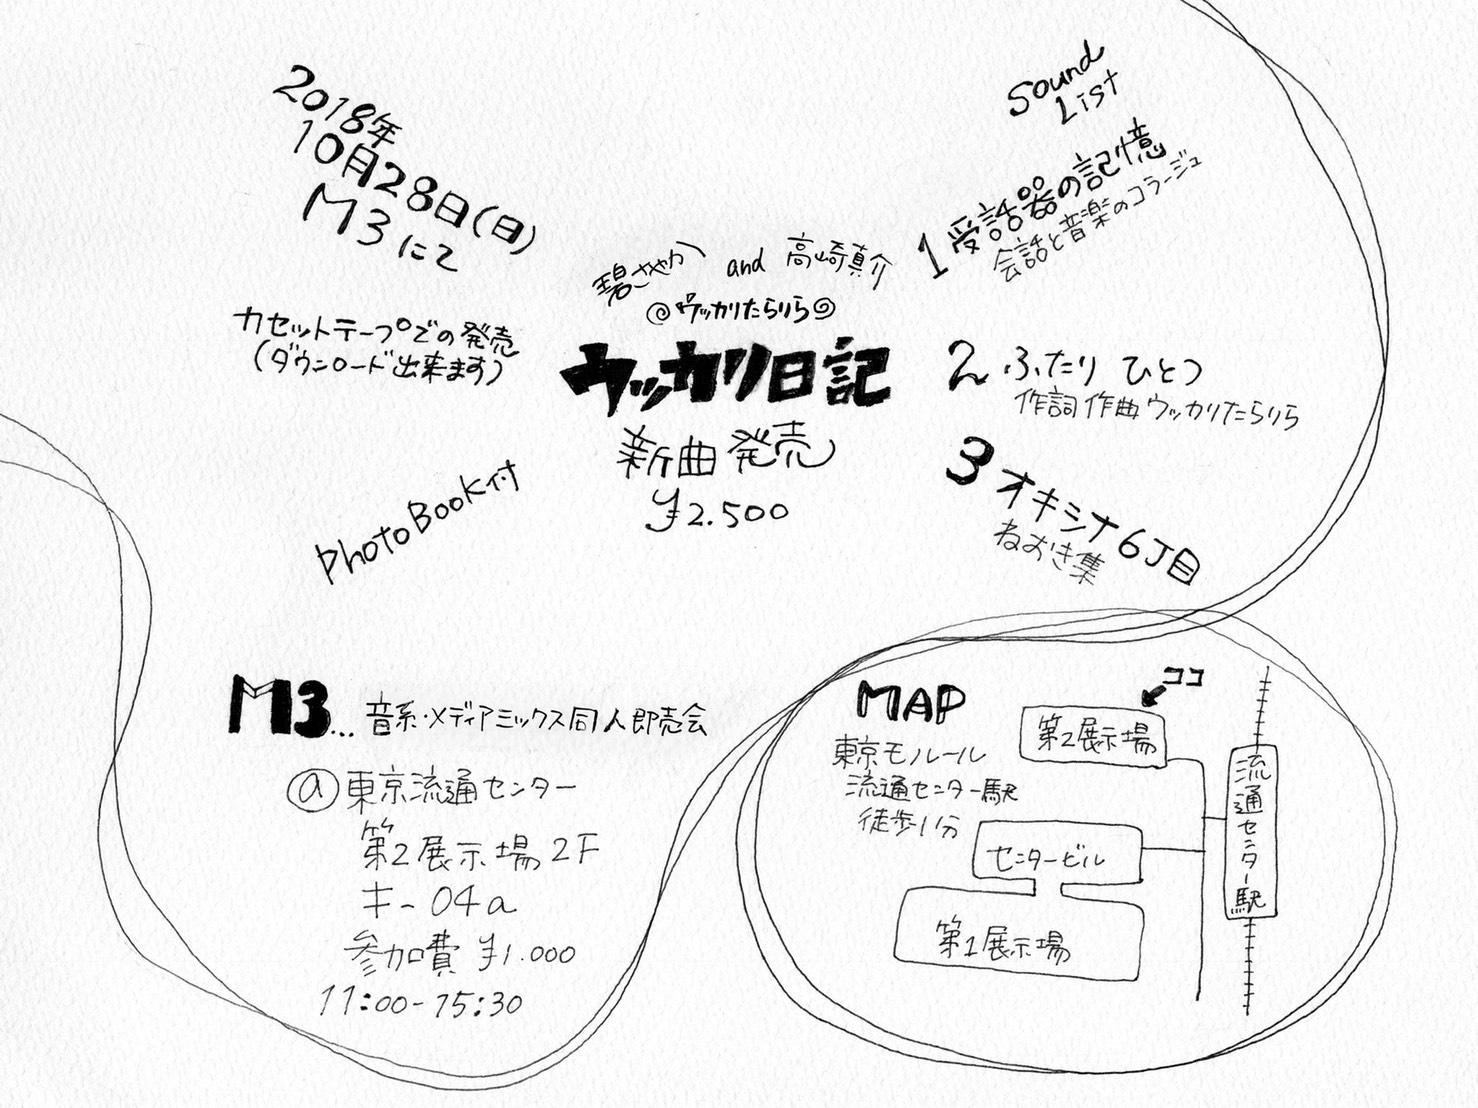 2018年
10月28日(日)
M3にて
カセットテープでの発売
(ダウンロード出来ます)
Photo Book付
碧さやか and 高崎真介
@ウッカリたらりら@
ウッカリ日記
新曲発売
¥2.500
Sound
List
1 受話器の記憶
会話と音楽のコラージュ
2 ふたり ひとつ
作詞作曲ウッカリたらりら
3 オキシナ6丁目
ねおき集
M3... 音系・メディアミックス同人即売会
@東京流通センター
第2展示場 2F
キ-04a
参加費 ¥1.000
11:00-15:30
MAP
東京モノルール
流通センター駅
徒歩1分
ココ
第2展示場
センタービル
第1展示場
流通センター駅